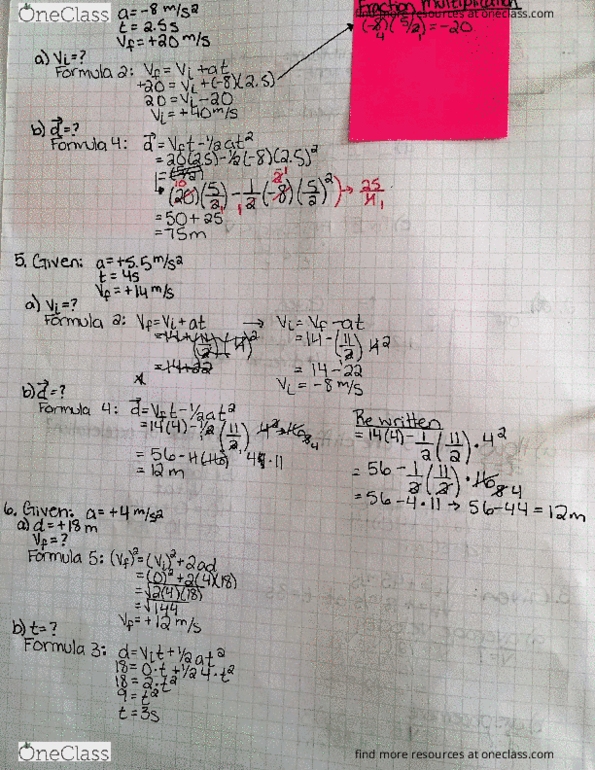 OneClass
a=-8 m/s²
t = 2.5s
Vf = +20 m/s
Fraction Multiplication
find more resources at oneclass.com
(-8)(5/2) = -20
4 1
a) Vi = ?
Formula 2: Vf = Vi + at
+20 = Vi + (-8)(2.5)
20 = Vi - 20
Vi = +40 m/s
b) d = ?
Formula 4: d = Vft - 1/2 at²
= 20(2.5) - 1/2(-8)(2.5)²
= (20)(5/2) - 1/2(-8)(5/2)² → 25/1
= 50 + 25
= 75m
5. Given: a = +5.5 m/s²
t = 4s
Vf = +14 m/s
a) Vi = ?
Formula 2: Vf = Vi + at → Vi = Vf - at
= 14 - (11/2) 4 2
= 14 - 22
Vi = -8 m/s
b) d = ?
Formula 4: d = Vft - 1/2 at²
= 14(4) - 1/2 (11/2) 4²
= 56 - 4 · 11
= 12 m
Rewritten
= 14(4) - 1/2 (11/2) · 4²
= 56 - 1/2 (11/2) · 16 8 4
= 56 - 4 · 11 → 56 - 44 = 12m
6. Given: a = +4 m/s²
a) d = +18 m
Vf = ?
Formula 5: (Vf)² = (Vi)² + 2ad
= (0)² + 2(4)(18)
= √2(4)(18)
= √144
Vf = +12 m/s
b) t = ?
Formula 3: d = Vit + 1/2 at²
18 = 0·t + 1/2 4·t²
18 = 2·t²
9 = t²
t = 3s
OneClass
find more resources at oneclass.com